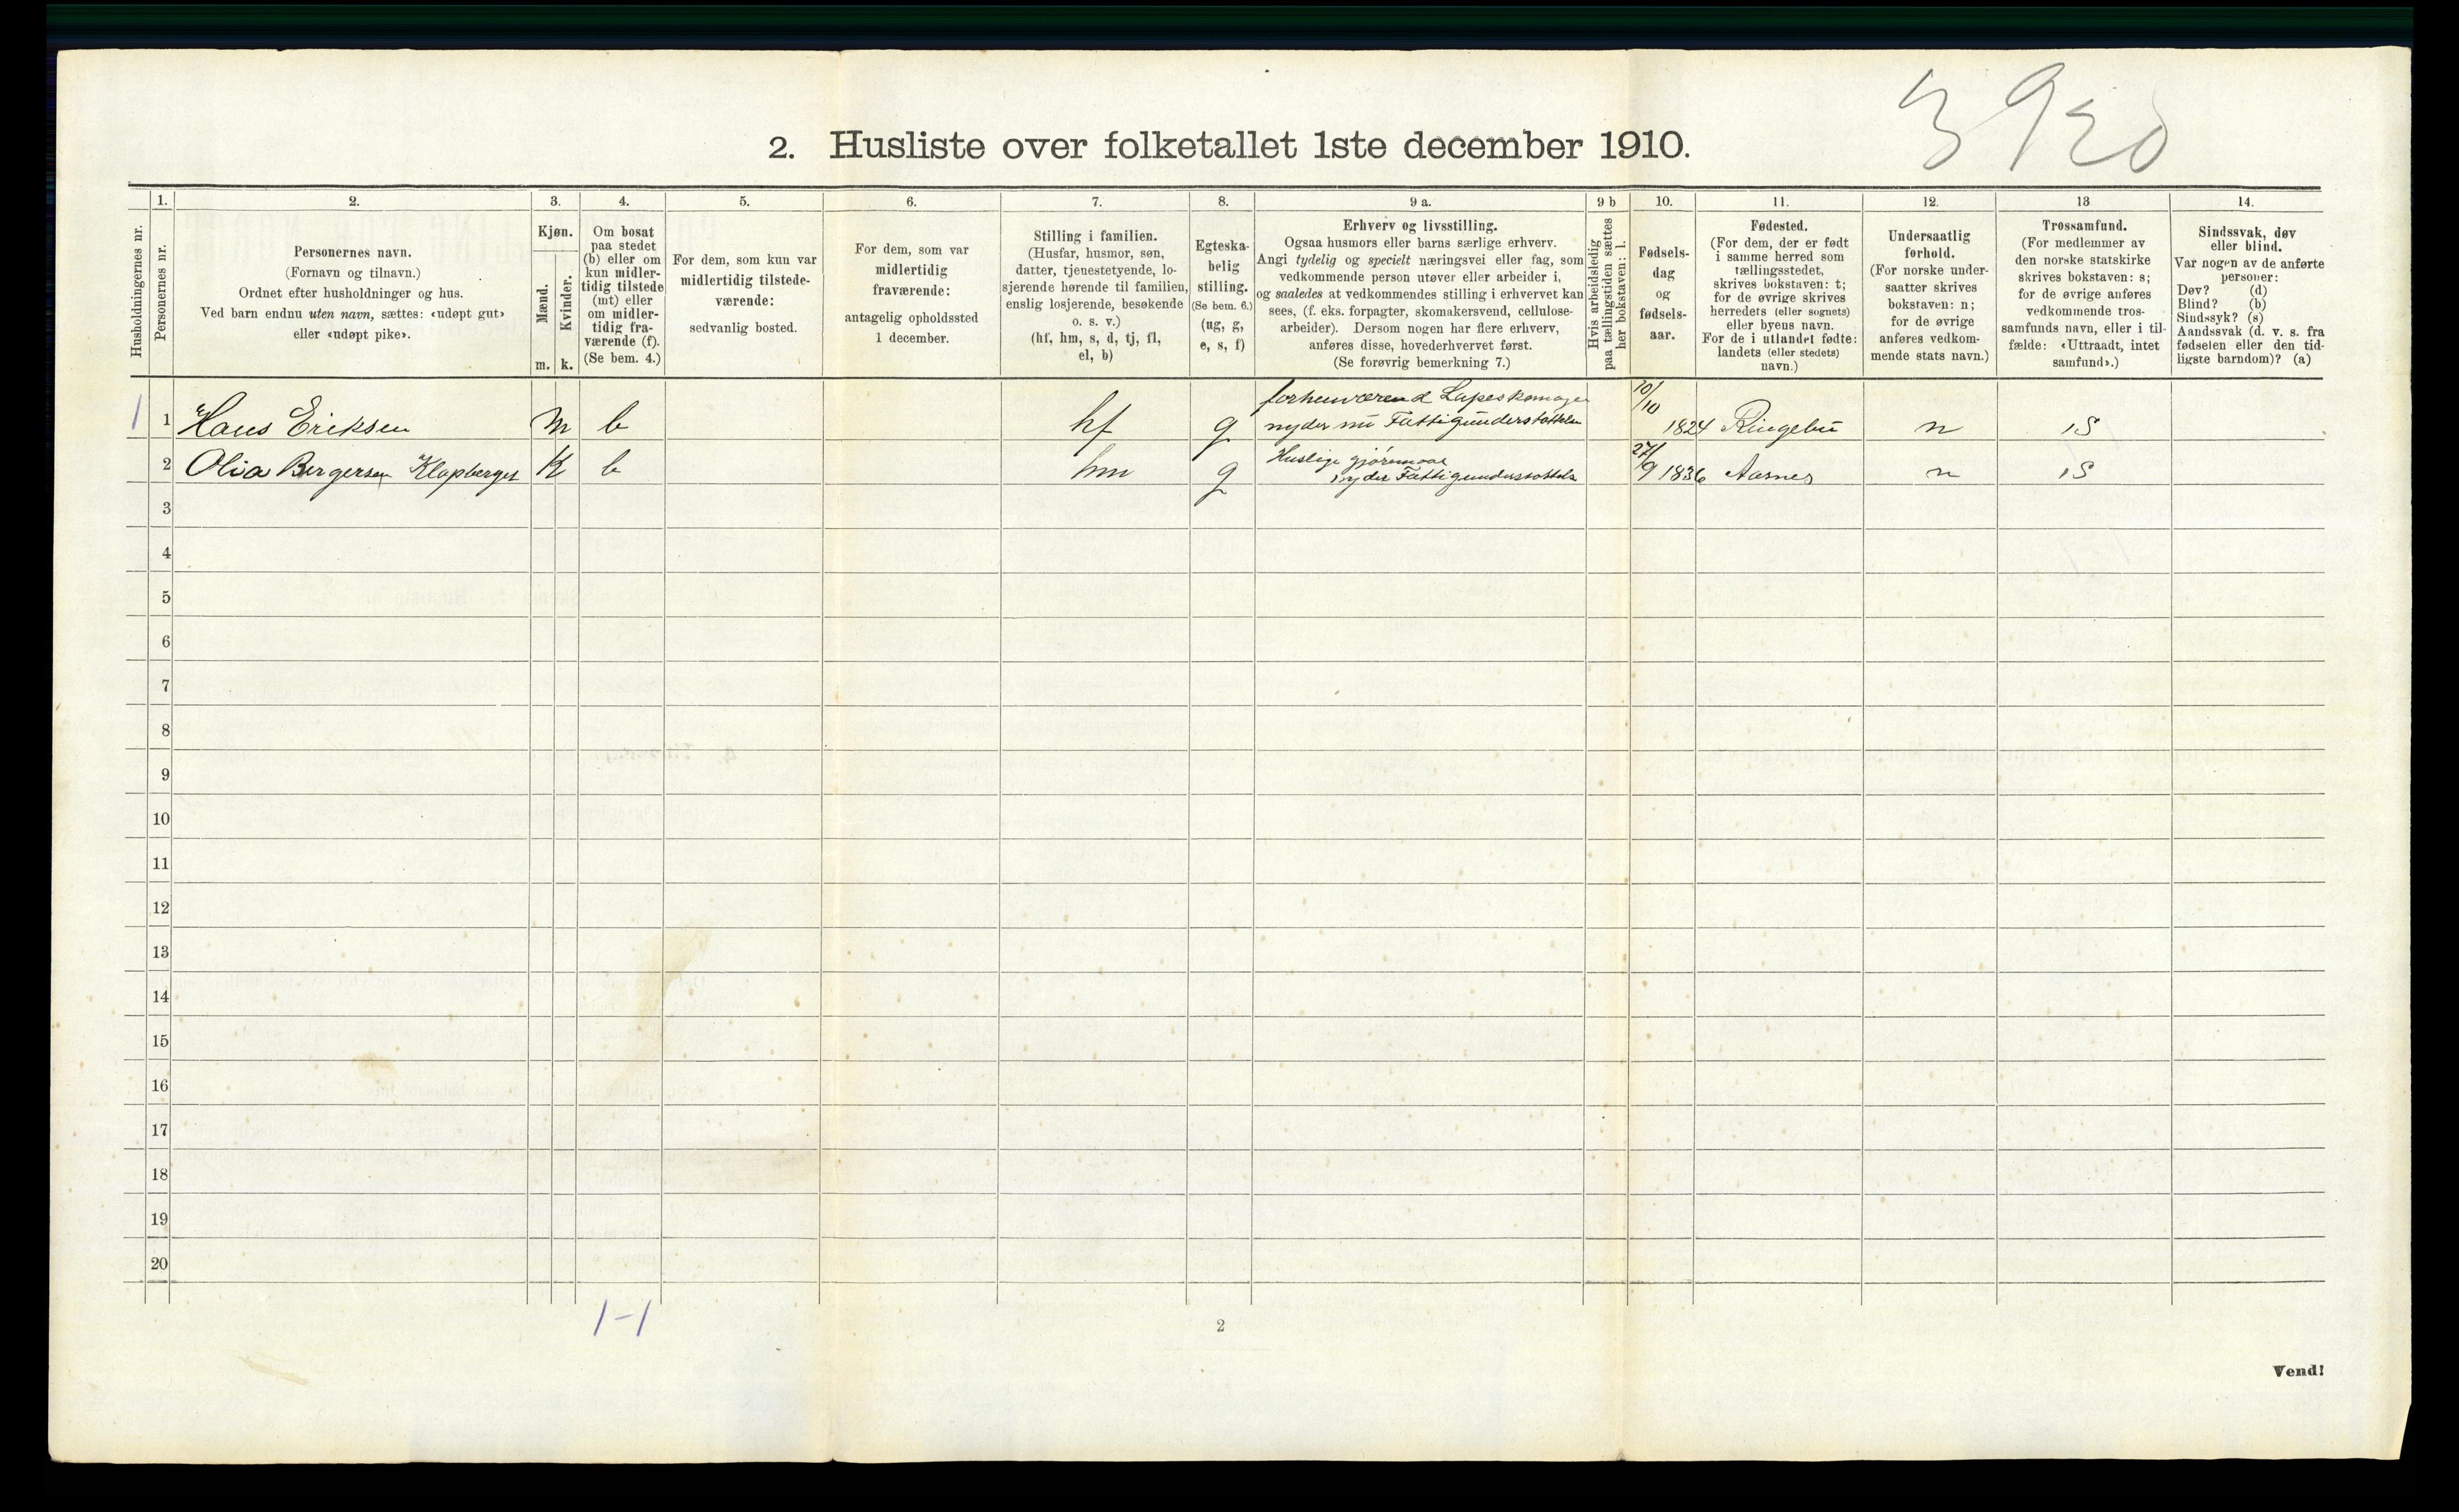 3920
2. Husliste over folketallet 1ste december 1910.
Husholdningernes nr.
1.
Personernes nr.
2.
Personernes navn.
(Fornavn og tilnavn.)
Ordnet efter husholdninger og hus.
Ved barn endnu uten navn, sættes: «udøpt gut»
eller «udøpt pike».
3.
Kjøn.
Mænd.
Kvinder.
m. k.
4.
Om bosat
paa stedet
(b) eller om
kun midler-
tidig tilstede
(mt) eller
om midler-
tidig fra-
værende (f).
(Se bem. 4.)
5.
For dem, som kun var
midlertidig tilstede-
værende:
sedvanlig bosted.
6.
For dem, som var
midlertidig
fraværende:
antagelig opholdssted
1 december.
7.
Stilling i familien.
(Husfar, husmor, søn,
datter, tjenestetyende, lo-
sjerende hørende til familien,
enslig losjerende, besøkende
o. s. v.)
(hf, hm, s, d, tj, fl,
el, b)
8.
Egteska-
belig
stilling.
(Se bem. 6.)
(ug, g,
e, s, f)
9 a.
Erhverv og livsstilling.
Ogsaa husmors eller barns særlige erhverv.
Angi tydelig og specielt næringsvei eller fag, som
vedkommende person utøver eller arbeider i,
og saaledes at vedkommendes stilling i erhvervet kan
sees, (f. eks. forpagter, skomakersvend, cellulose-
arbeider). Dersom nogen har flere erhverv,
anføres disse, hovederhvervet først.
(Se forøvrig bemerkning 7.)
9 b
Hvis arbeidsledig
paa tællingstiden sættes
her bokstaven: l.
10.
Fødsels-
dag
og
fødsels-
aar.
11.
Fødested.
(For dem, der er født
i samme herred som
tællingsstedet,
skrives bokstaven: t;
for de øvrige skrives
herredets (eller sognets)
eller byens navn.
For de i utlandet fødte:
landets (eller stedets)
navn.)
12.
Undersaatlig
forhold.
(For norske under-
saatter skrives
bokstaven: n;
for de øvrige
anføres vedkom-
mende stats navn.)
13
Trossamfund.
(For medlemmer av
den norske statskirke
skrives bokstaven: s;
for de øvrige anføres
vedkommende tros-
samfunds navn, eller i til-
fælde: «Uttraadt, intet
samfund».)
14.
Sindssvak, døv
eller blind.
Var nogen av de anførte
personer:
Døv? (d)
Blind? (b)
Sindssyk? (s)
Aandssvak (d. v. s. fra
fødselen eller den tid-
ligste barndom)? (a)
forhenværend Lapeskomager 10/10
1 1 Hans Eriksen m b hf g nyder nu Fattigunderstøttelse 1824 Ringebu n S
Huslige gjøremaal 27/
2 Olia Bergersen Klopberget K b hm g nyder Fattigunderstøttelse 9 1836 Aasnes n S
3
4
5
6
7
8
9
10
11
12
13
14
15
16
17
18
19
20
1-1
2
Vend!